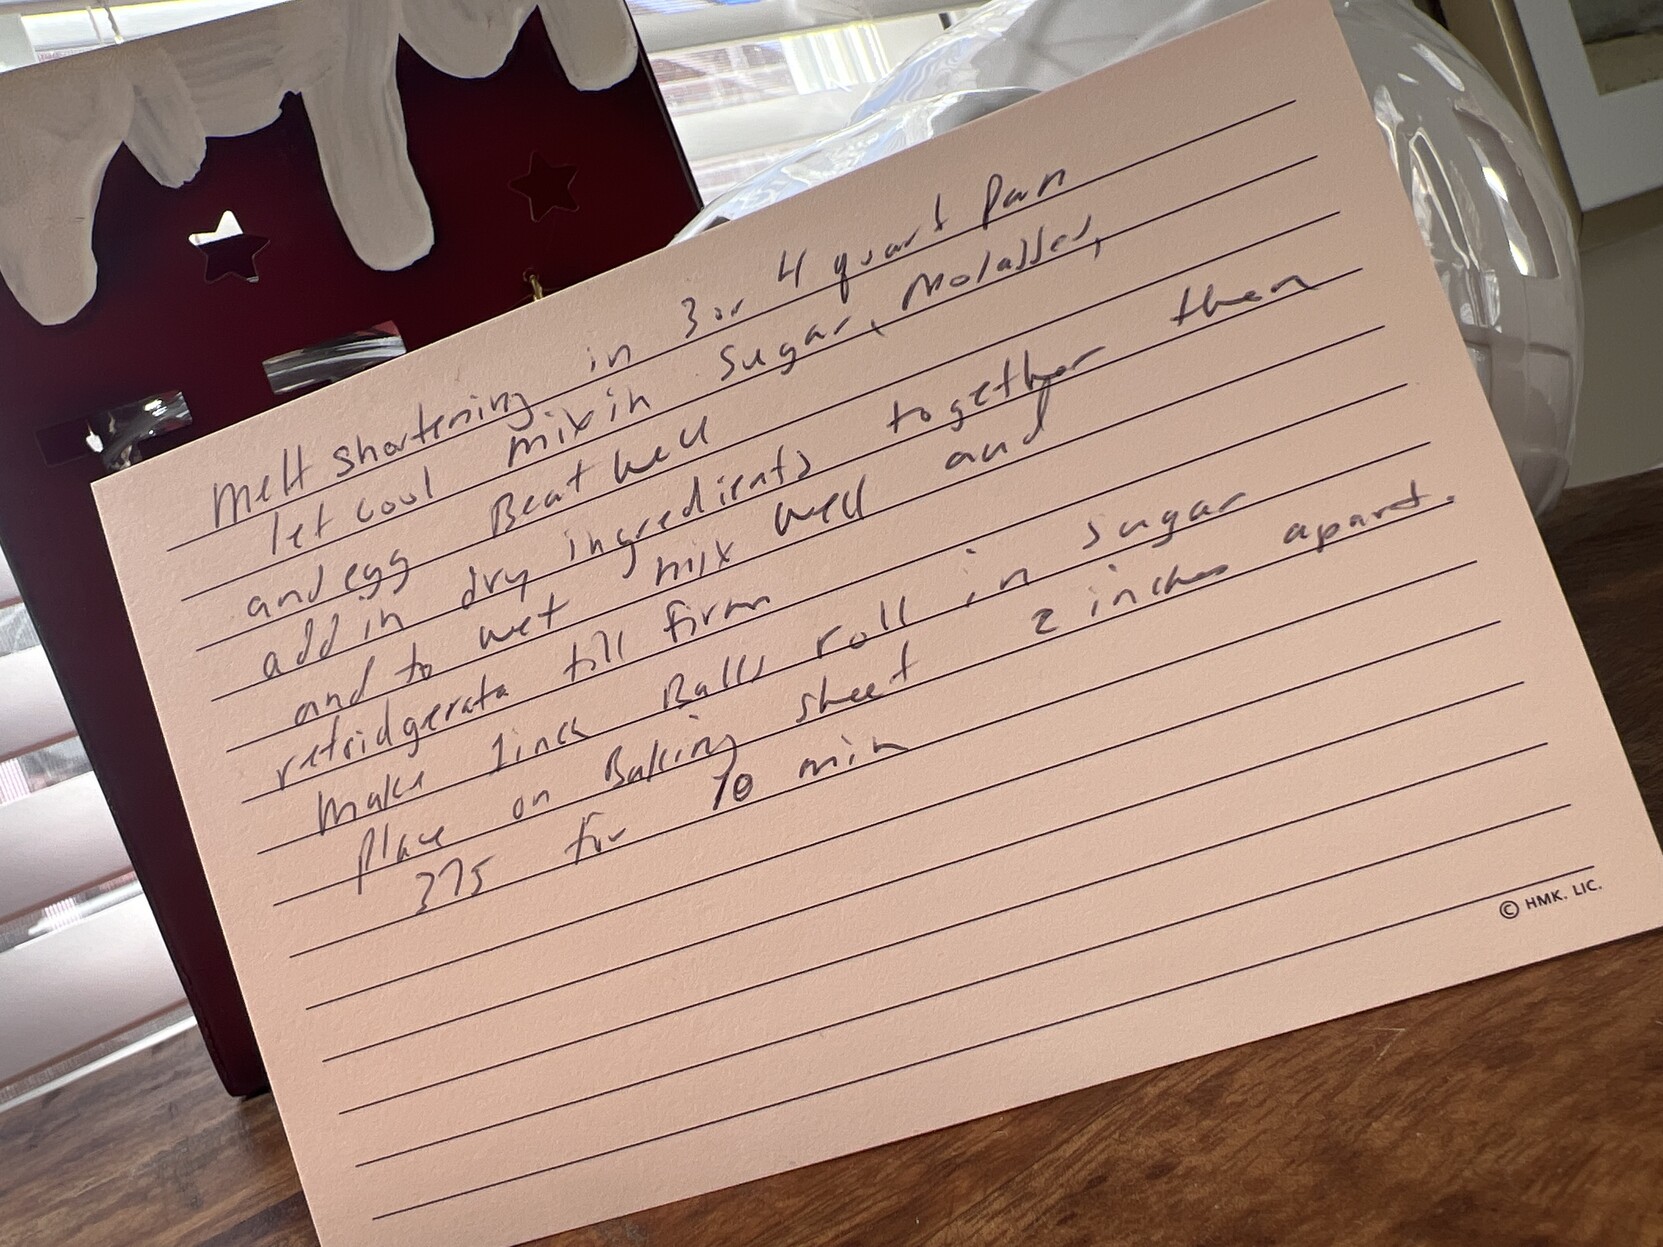 Melt shortening in 3 or 4 quart Pan
let cool mix in sugar, Molasses,
and egg Beat well
add in dry ingredients together then
and to wet mix well and
refridgerate till firm
Make 1 inch Balls roll in sugar
Place on Baking sheet 2 inches apart.
375 for 10 min
© HMK. LIC.